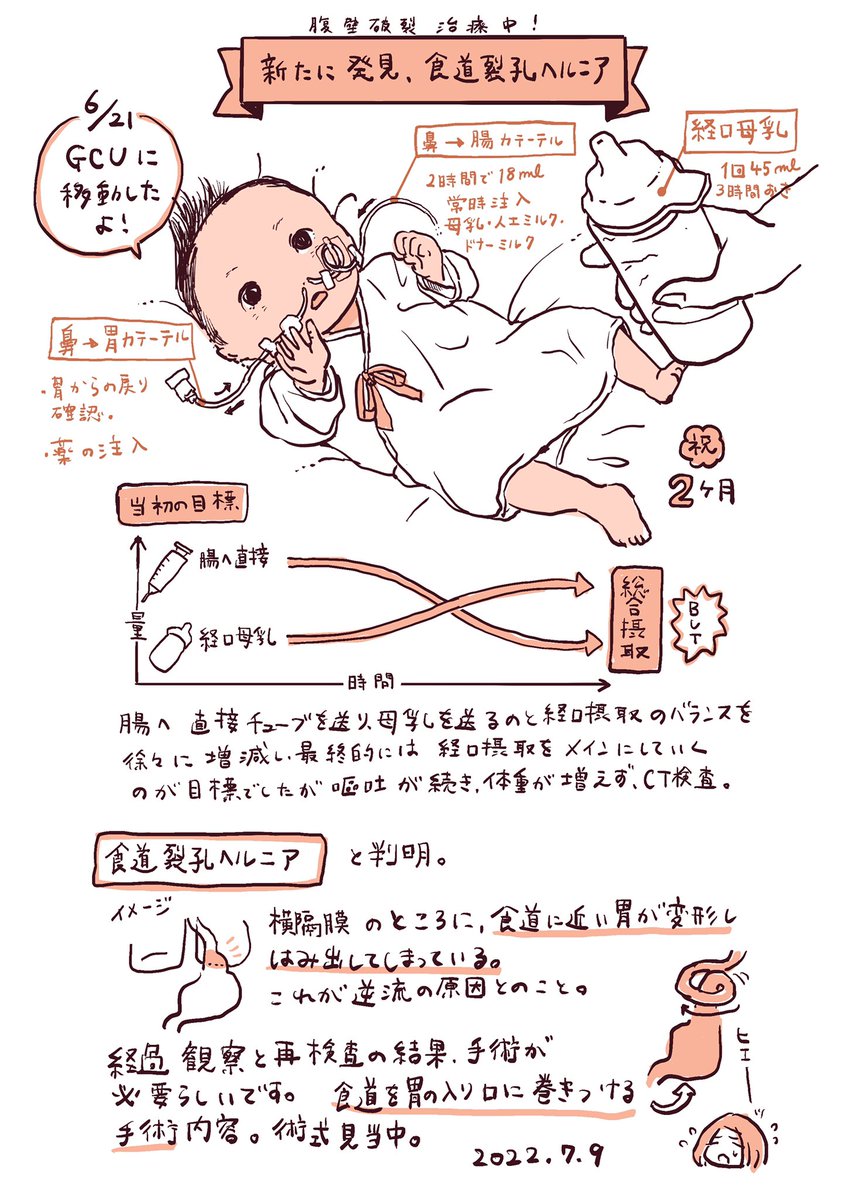 腹壁破裂 治療中!
新たに発見、食道裂孔ヘルニア
6/21
GCUに
移動した
よ!
鼻→腸カテーテル
2時間で18ml
常時注入
母乳・人工ミルク・
ドナーミルク
経口母乳
1回45ml
3時間おき
鼻→胃カテーテル
・胃からの戻り
確認。
・薬の注入
祝
2ヶ月
当初の目標
腸へ直接
量
経口母乳
総合摂取
BUT
時間
腸へ直接チューブを送り、母乳を送るのと経口摂取のバランスを
徐々に増減し、最終的には経口摂取をメインにしていく
のが目標でしたが嘔吐が続き、体重が増えず、CT検査。
食道裂孔ヘルニア と判明。
イメージ
横隔膜のところに、食道に近い胃が変形し
はみ出してしまっている。
これが逆流の原因とのこと。
経過観察と再検査の結果、手術が
必要らしいです。食道を胃の入り口に巻きつける
手術内容。術式見当中。
ヒエー
2022.7.9